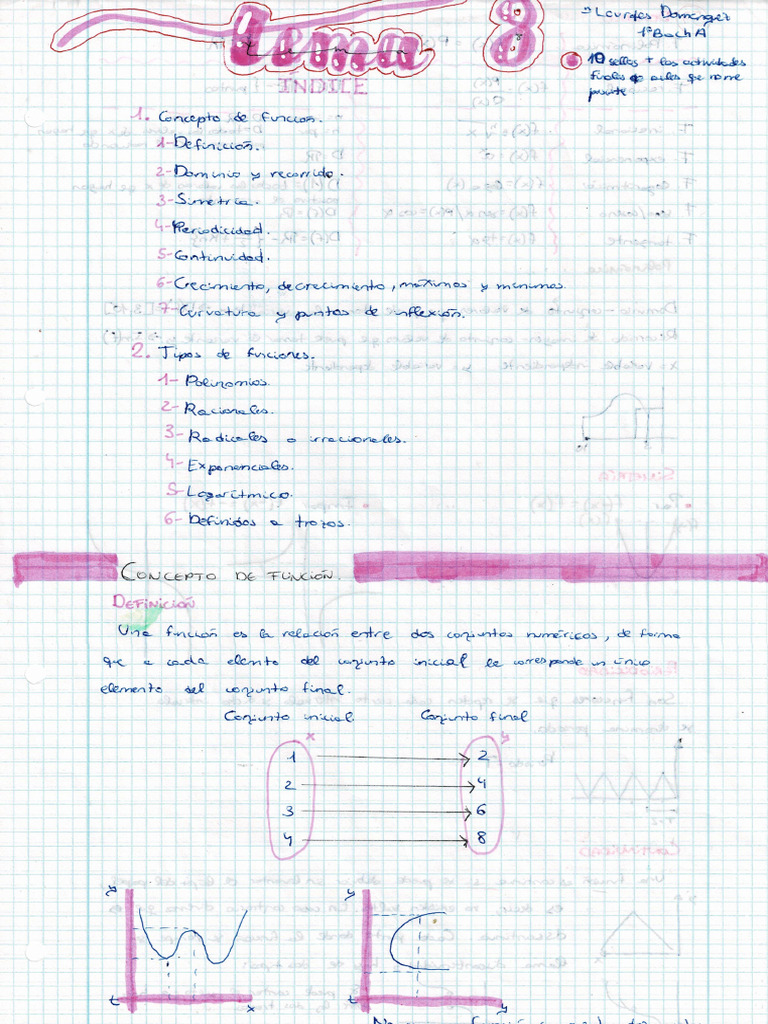 Tema 8
Lourdes Dominguez
1º Bach A
10 sellos + las actividades
finales
ÍNDICE
1. Concepto de función.
1- Definición.
2- Dominio y recorrido.
3- Simetría.
4- Periodicidad.
5- Continuidad.
6- Crecimiento, decrecimiento, máximos y mínimos.
7- Curvatura y puntos de inflexión.
2. Tipos de funciones.
1- Polinomios.
2- Racionales.
3- Radicales o irracionales.
4- Exponenciales.
5- Logarítmico.
6- Definidos a trozos.
CONCEPTO DE FUNCIÓN.
DEFINICIÓN
Una función es la relación entre dos conjuntos numéricos, de forma
que a cada elemto del conjunto inicial le corresponde un único
elemento del conjunto final.
Conjunto inicial Conjunto final
x y
1 2
2 4
3 6
4 8
y y
t x t y